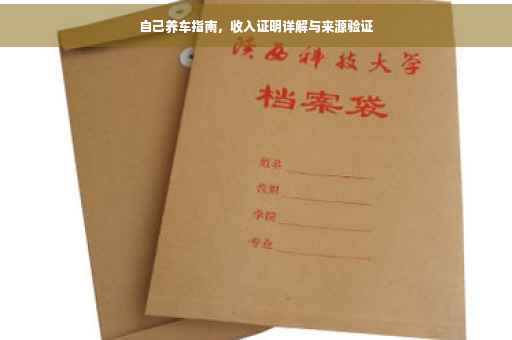 自己养车指南，收入证明详解与来源验证
陕西科技大学
档案袋
姓名
学院
专业